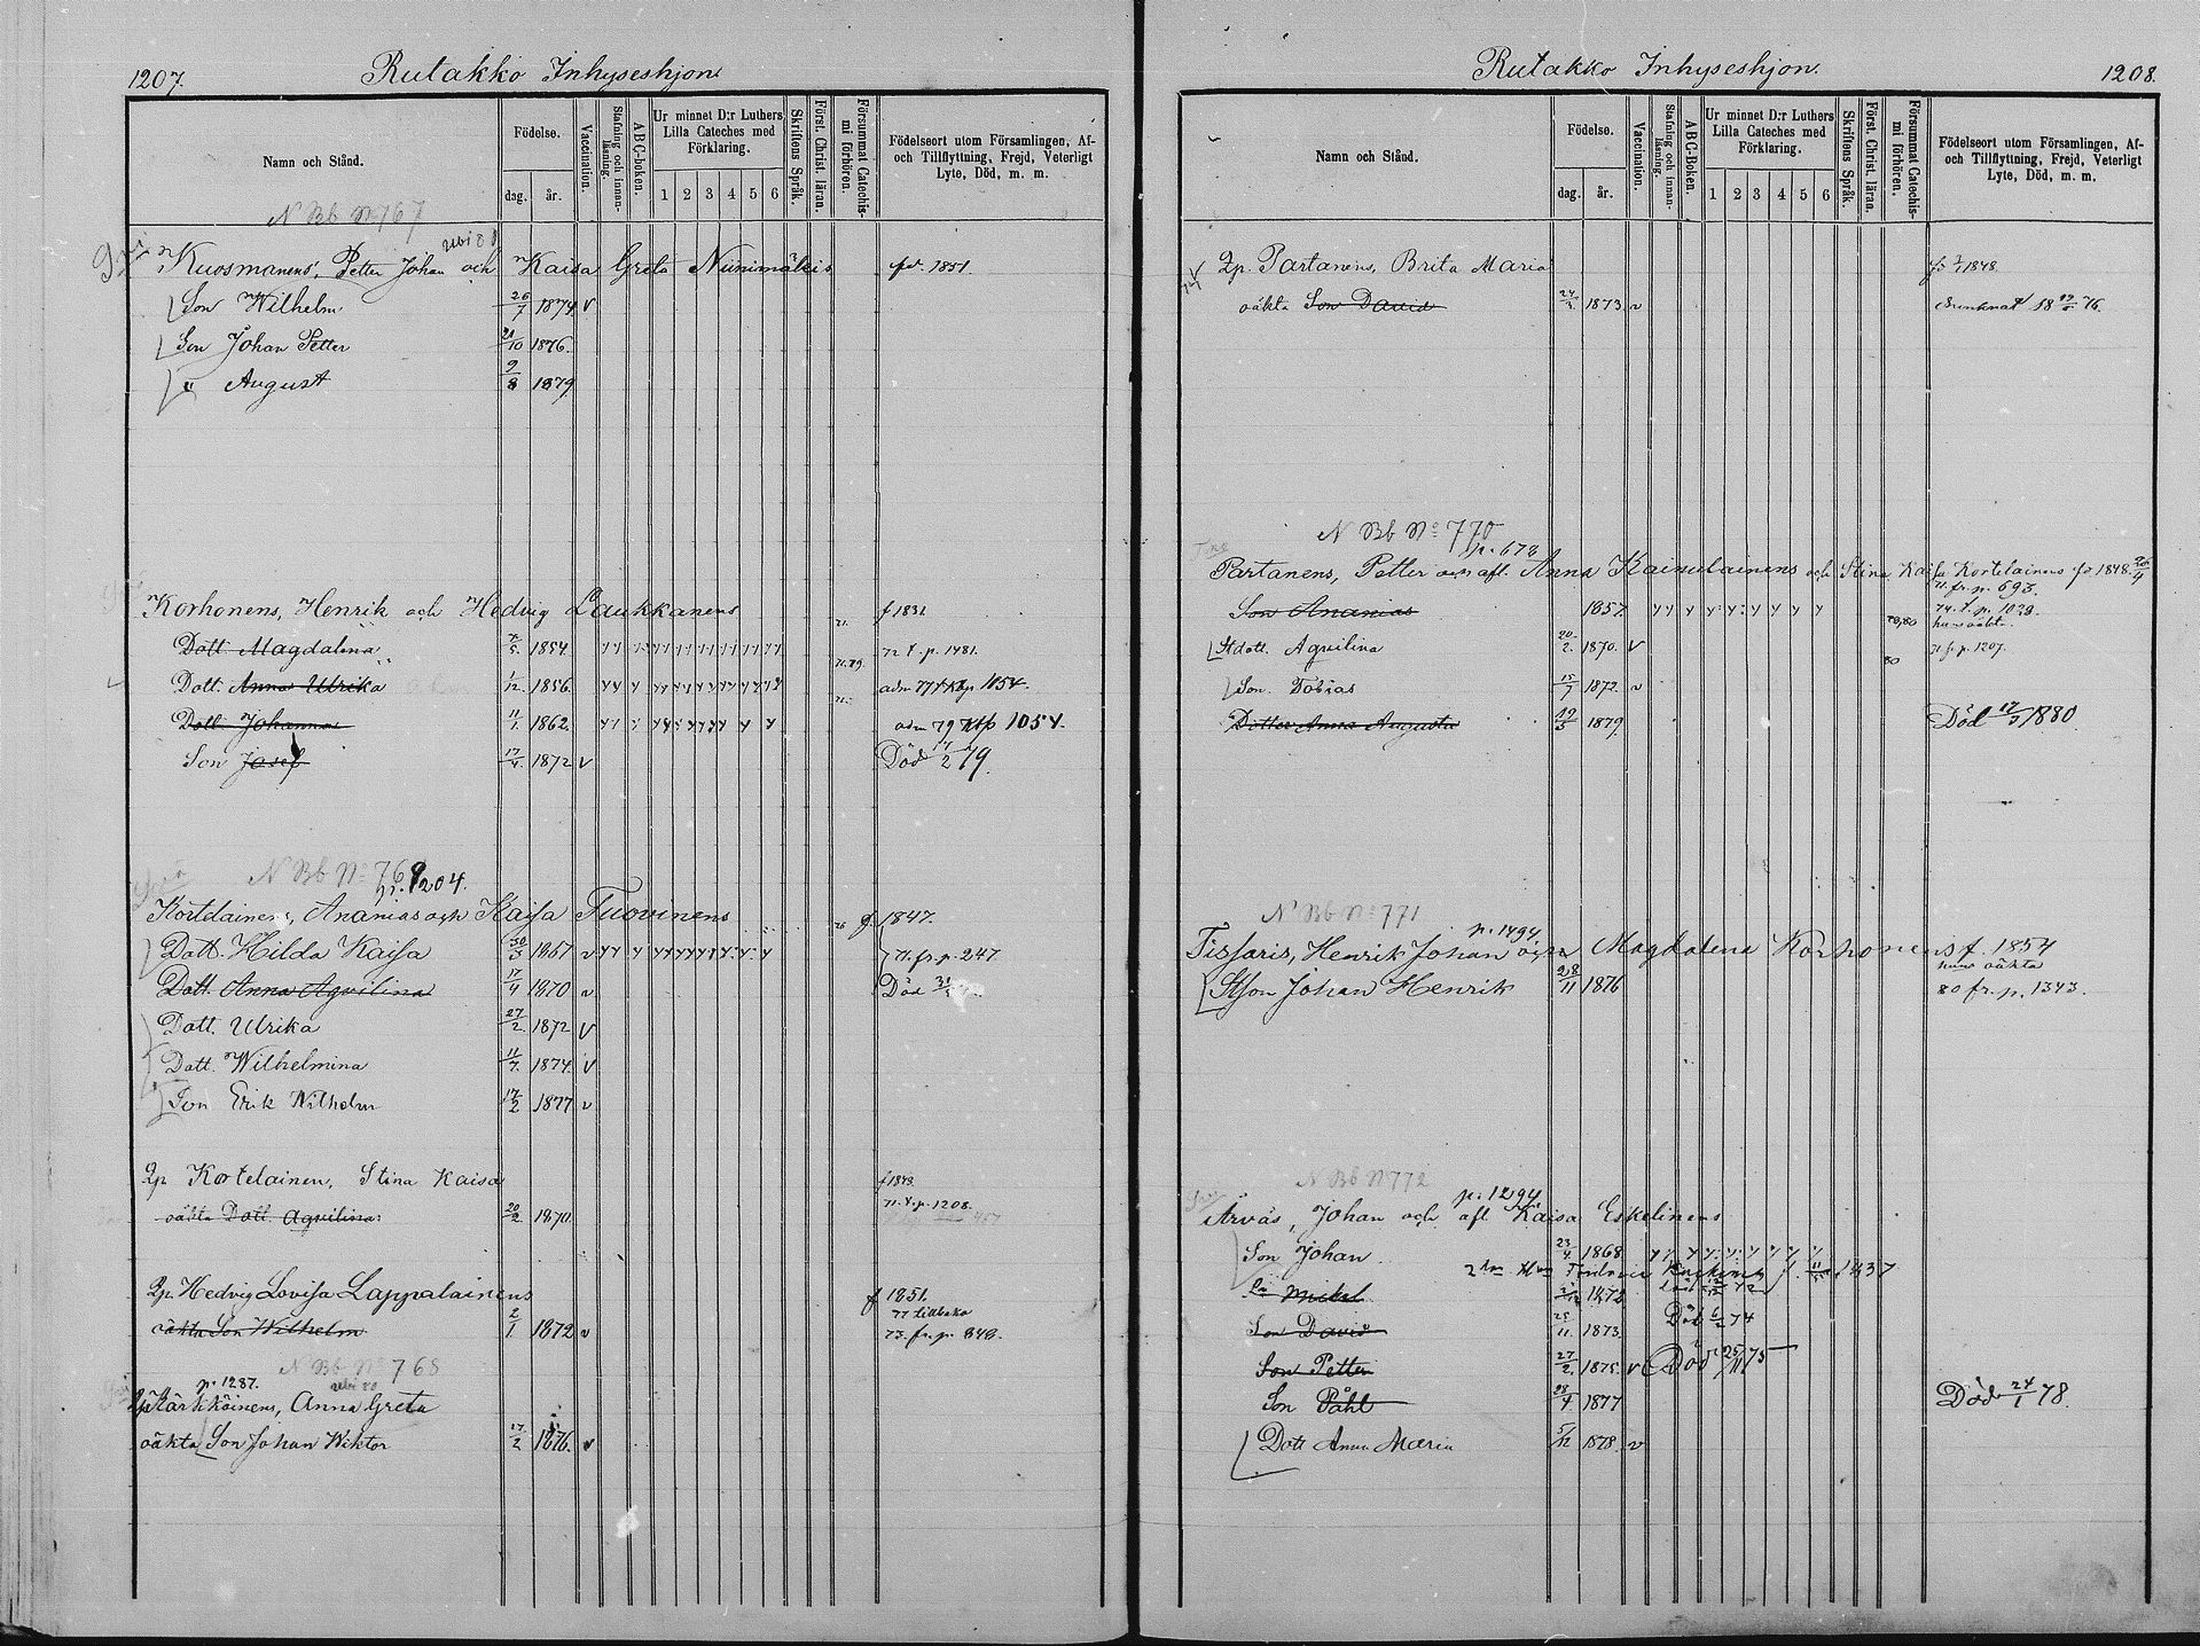 1207.
Rutakko Inhyseshjon
Namn och Stånd.
Födelse.
dag.
år.
Vaccination.
Stafning och innanläsning.
ABC-boken.
Ur minnet D:r Luthers Lilla Cateches med Förklaring.
1 2 3 4 5 6
Skriftens Språk.
Först. Christ. läran.
Försummat Catechismi förhören.
Födelseort utom Församlingen, Af- och Tillflyttning, Frejd, Veterligt Lyte, Död, m. m.
N Bb No 767
Kuosmanens, Petter Johan och Kaisa Greta Niinimäkis fd. 1851.
Son Wilhelm 26/7 1874 v
Son Johan Petter 21/10 1876.
" August 9/8 1879
Korhonens, Henrik och Hedvig Laukkanens 71. f 1831
Dott. Magdalena 5. 1854. 71.79. 72 t. p. 1481.
Dott. Anna Ulrika 1/12. 1856. 71. 1054.
Dott. Johanna 11/1. 1862. adm 79 1054.
Son Josef 17/4. 1872 v Död 17/2 79.
N Bb No 769
p. 1204.
Kortelainens, Ananias och Kaisa Tuovinens 76 f. 1847.
Dott. Hilda Kaisa 30/3 1867 v 71. fr. p. 247
Dott. Anna Aqvilina 17/4 1870 v Död
Dott. Ulrika 27/2. 1872 v
Dott. Wilhelmina 11/7. 1874. v
Son Erik Wilhelm 17/2 1877 v
Qp Kortelainen, Stina Kaisa f 1848.
oäkta Dott. Aqvilina 20/2. 1870. 71. t. p. 1208.
Qp. Hedvig Lovisa Lappalainens f 1851.
77 tillbaka
oäkta Son Wilhelm 2/1 1872 v 73. fr. p. 848.
N Bb No 768
p. 1287.
Qp Kärkkäinens, Anna Greta
oäkta Son Johan Wiktor 17/2 1876. v
1208.
Rutakko Inhyseshjon.
Namn och Stånd.
Födelse.
dag.
år.
Vaccination.
Stafning och innanläsning.
ABC-Boken.
Ur minnet D:r Luthers Lilla Cateches med Förklaring.
1 2 3 4 5 6
Skriftens Språk.
Först. Christ. läran.
Försummat Catechismi förhören.
Födelseort utom Församlingen, Af- och Tillflyttning, Frejd, Veterligt Lyte, Död, m. m.
Qp. Partanens, Brita Maria 1848.
oäkta Son David 24/3. 1873 v 76.
N Bb No 770
p. 678
Partanens, Petter och afl. Anna Kainulainens och Stina Kaisa Kortelainens fd 1848 20/4
71. fr. p. 693.
Son Ananias 1857. 74. t. p. 1039.
hans oäkta
Stdott. Aqvilina 20/2. 1870. v 79,80 71 fr. p. 1207.
Son. Tobias 15/7 1872. v 80
Dotter Anna Augusta 19/3 1879 Död 17/3 1880.
N Bb No 771
p. 1494
Tissaris, Henrik Johan och Magdalena Korhonens f. 1854
hans oäkta
Stson Johan Henrik 28/11 1876 80 fr. p. 1343.
N Bb No 772
p. 1294
Arvas, Johan och afl. Kaisa Eskelinens
Son Johan 23/4. 1868
" Mikel 1872
Son David 25/11. 1873. Död 6/2 74
Son Petter 27/2. 1875. v Död 25/11 75
Son Påhl 28/4 1877 Död 24/1 78.
Dott Anna Maria 5/12 1878. v